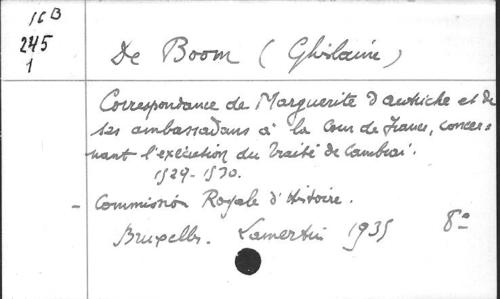 16 B
245
1
De Boom (Ghislaine)
Correspondance de Marguerite d'autriche et de
ses ambassadeurs à la Cour de France, concer-
nant l'exécution du Traité de Cambrai.
1529-1530.
- Commission Royale d'Histoire.
Bruxelles. Lamertin 1935 8º